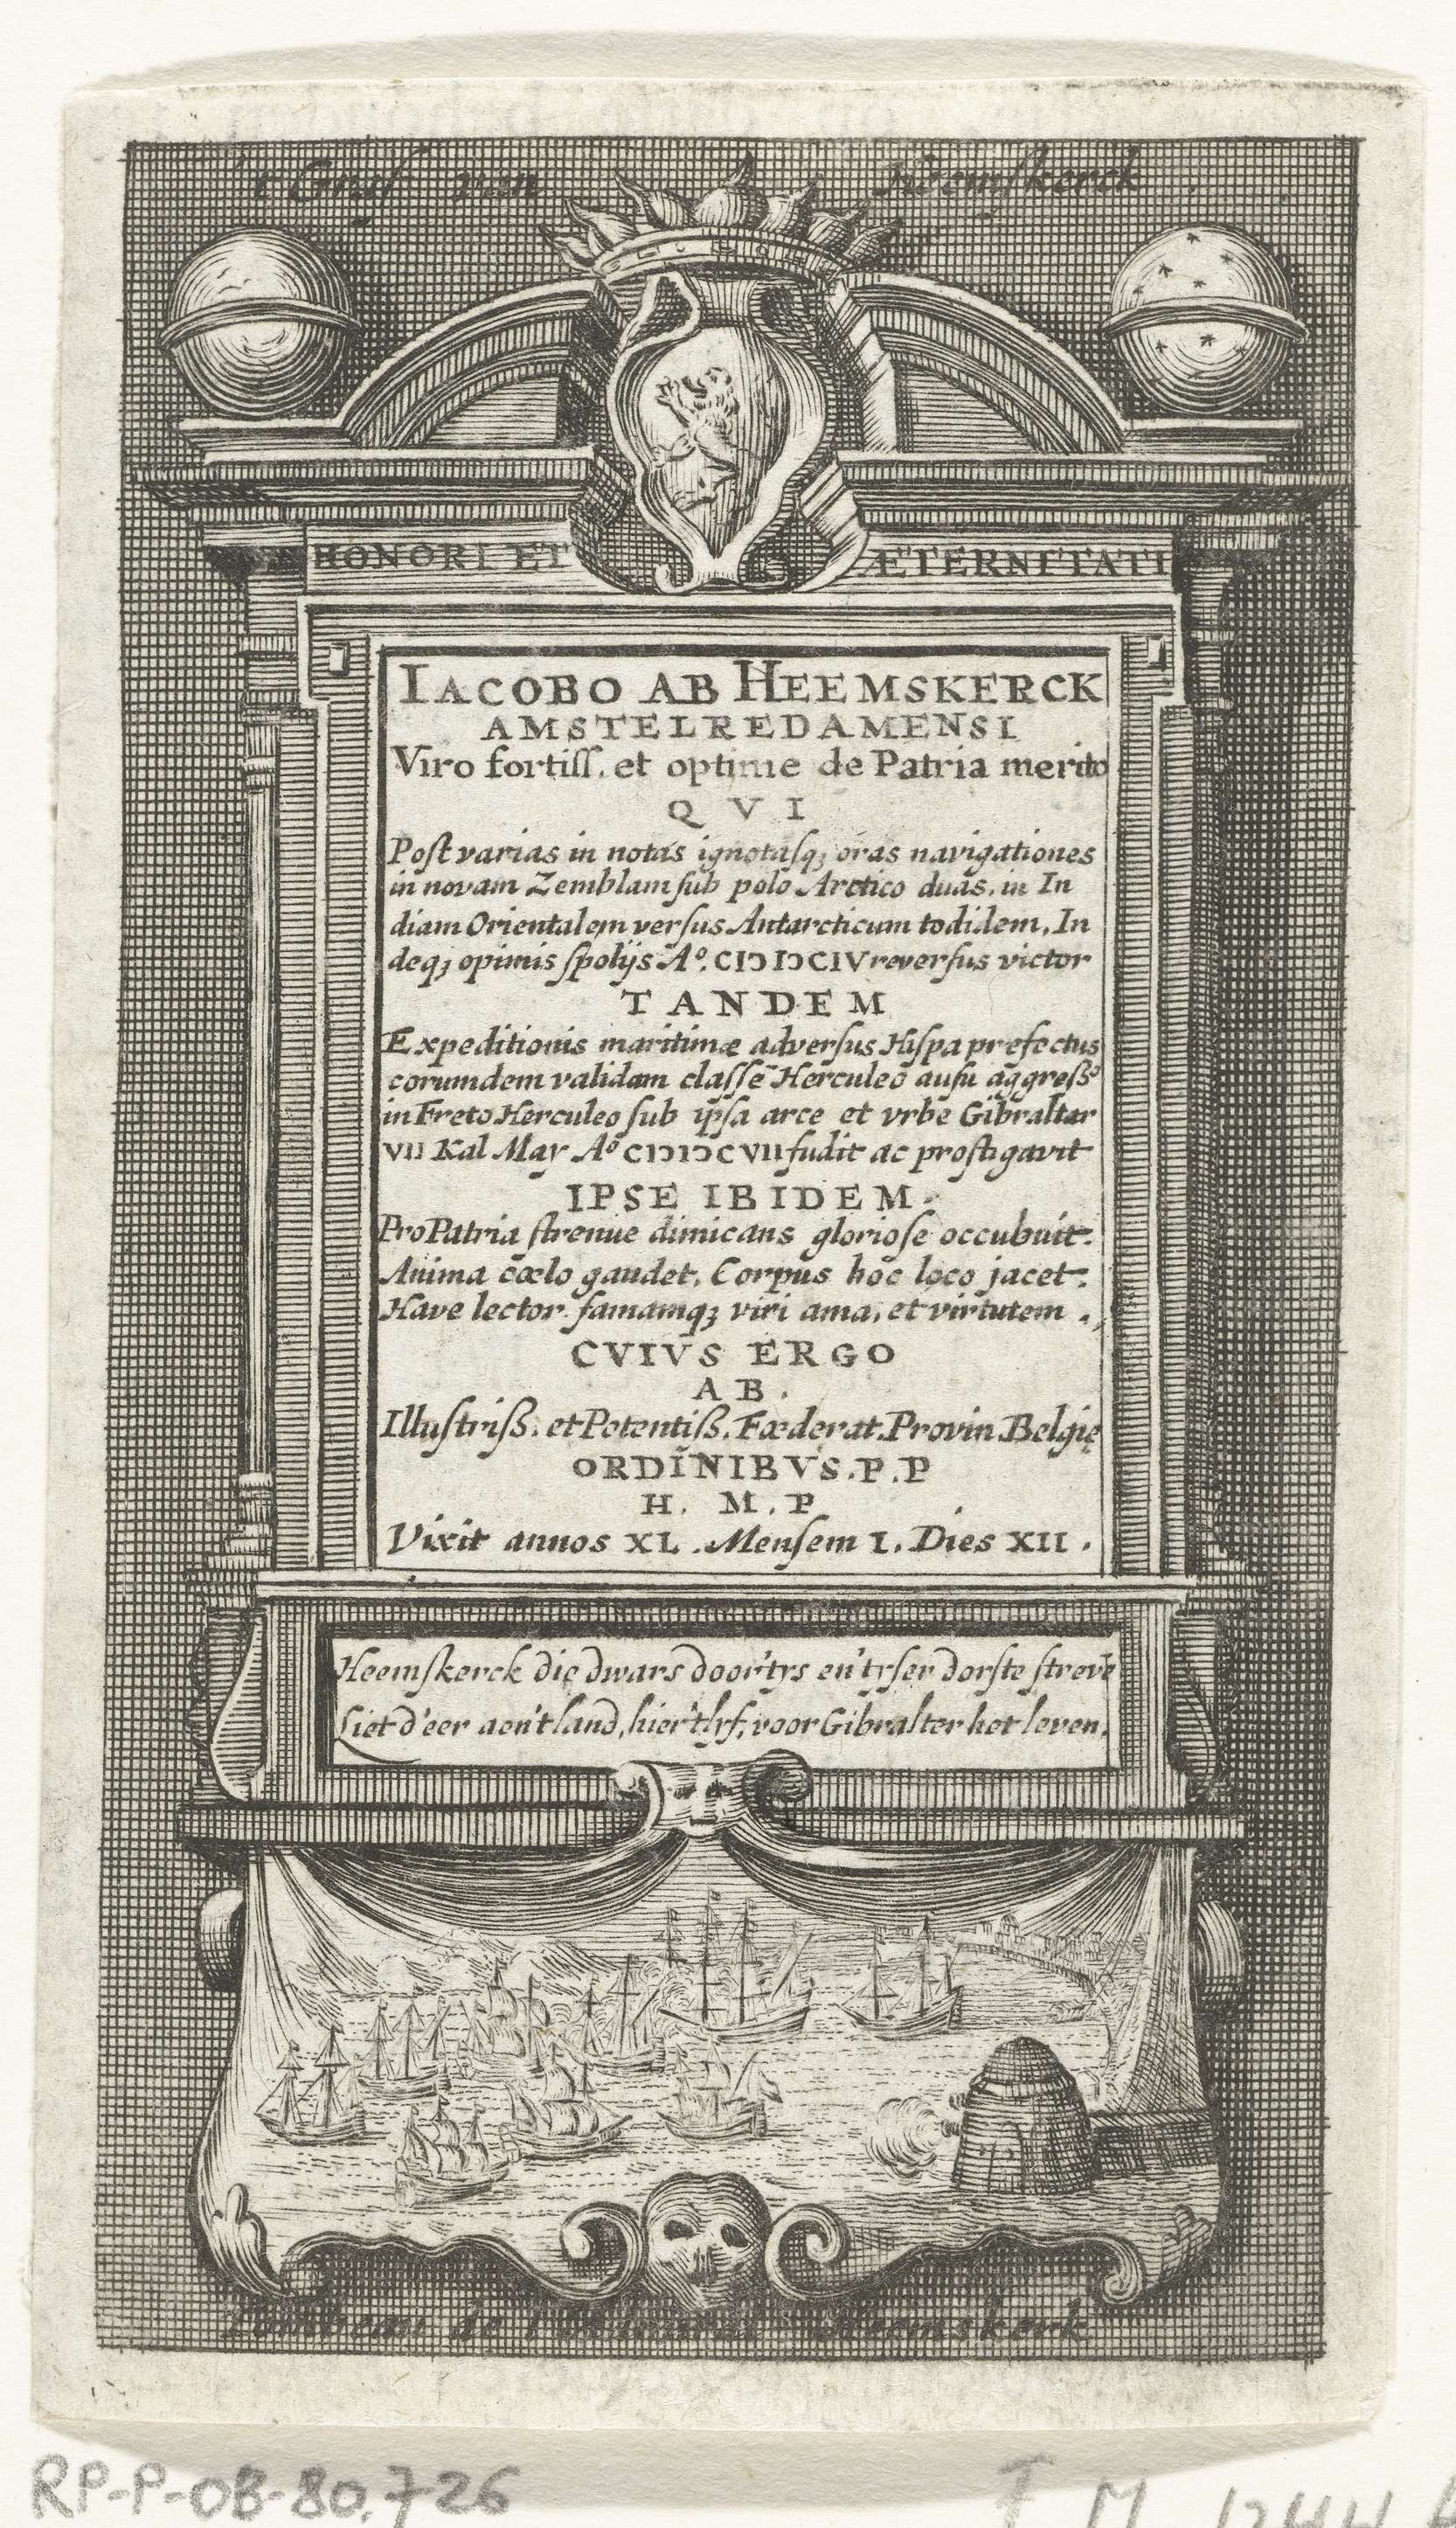 't Graf van Heemskerck
HONORI ET ÆTERNITATI
IACOBO AB HEEMSKERCK
AMSTELREDAMENSI
Viro fortiſſ. et optime de Patria merito
QVI
Poſt varias in notas ignotaſq; oras navigationes
in novam Zemblam ſub polo Arctico duas, in In
diam Orientalem verſus Antarcticum todidem, In
deq; opimis ſpolijs Aº. CIƆIƆCIV reverſus victor
TANDEM
Expeditionis maritimæ adverſus Hiſpa prefectus
eorumdem validam claſſē Herculeo auſu aggreſsꝰ
in Freto Herculeo ſub ipſa arce et vrbe Gibraltar
VII Kal May Aº CIƆIƆCVII fudit ac proſtigavit
IPSE IBIDEM.
Pro Patria ſtrenue dimicans glorioſe occubuit.
Anima cœlo gaudet, Corpus hoc loco jacet.
Have lector. famamq; viri ama, et virtutem.
CVIVS ERGO
AB.
Illuſtriß. et Potentiß. Fœderat. Provin. Belgię
ORDINIBVS. P. P
H. M. P
Vixit annos XL. Menſem I. Dies XII.
Heemſkerck die dwars door'tys en'tyſer dorſte ſtrevē
Liet d'eer aen't land, hier't lyf, voor Gibralter het leven.
Tombeau de l'Admiral Heemskerk
RP-P-OB-80.726
F M 1244